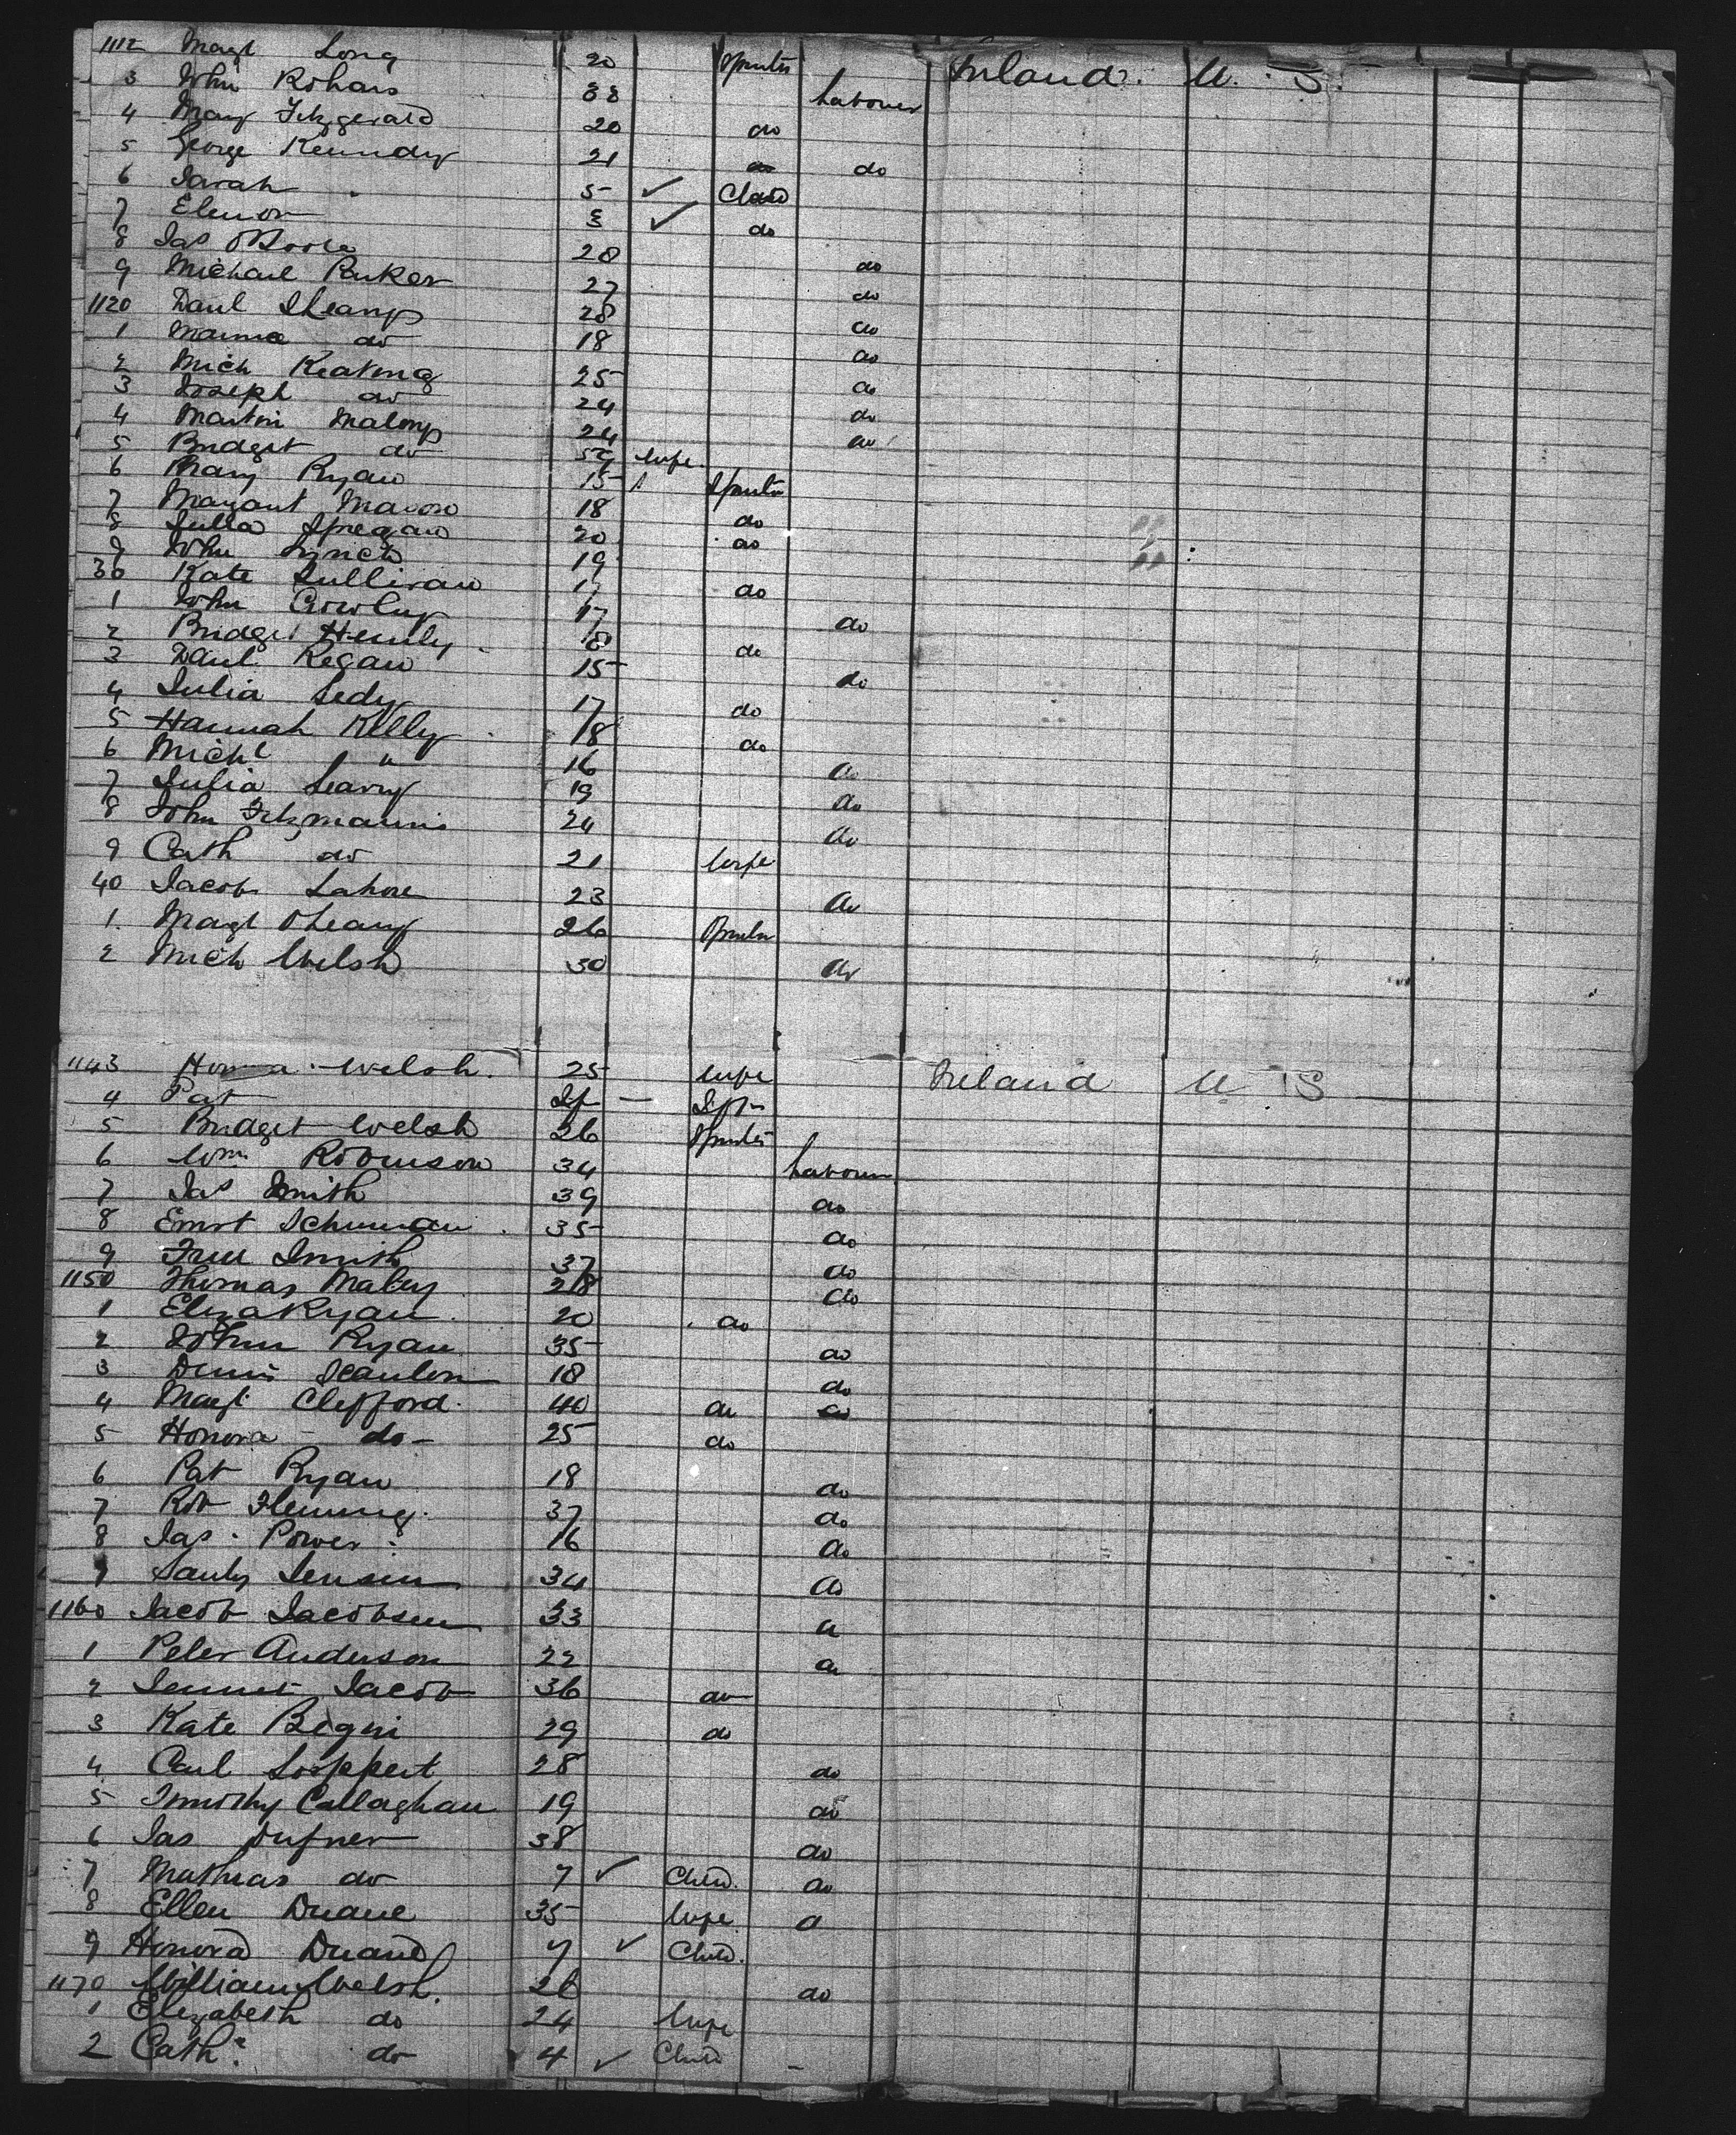 1112 Magt Long 20 Spinster Ireland. U. S.
3 John Rohans 38 Labourer
4 Mary Fitzgerald 20 do
5 George Kennedy 21 do do
6 Sarah " 5 ✓ Child
7 Elenor 3 ✓ do
8 Jas 28 do
9 Michael 27 do
1120 Danl 28 do
1 do 18 do
2 Mich Keating 25 do
3 Joseph do 24 do
4 Martin Malony 24 do
5 Bridget do wife
6 Mary Ryan 15 Spinster
7 Margaret 18 do
8 Julia 20 do
9 John Lynch 19
30 Kate Sullivan 17 do
1 John Crowley 17 do
2 Bridget 18 do
3 Danl Regan 15 do
4 Julia 17 do
5 Hannah Kelly 18 do
6 Michl " 16 do
7 Julia Leary 19 do
8 John Fitzmauris 24 do
9 Cath do 21 wife
40 Jacob Lahore 23 do
1. Magt OLeary 26 Spinster
2 Mich Welsh 30 do
1143 Honora Welsh. 25 wife Ireland U S
4 Pat
5 Bridget Welsh 26 Spinster
6 Wm Robinson 34 Labourer
7 Jas Smith 39 do
8 Ernst Schuman 35 do
9 Smith 37 do
1150 Thomas 28 do
1 Eliza Ryan. 20 do
2 Johnn Ryan 35 do
3 Denis Scanlon 18 do
4 Magt Clifford. 40 do do
5 Honora - do - 25 do
6 Pat Ryan 18 do
7 Rob Fleming. 37 do
8 Jas. Power. 16 do
9 34 do
1160 Jacob Jacobsen 33 do
1 Peter Anderson 22 do
2 Jacob 36 do
3 Kate 29 do
4 Carl 28 do
5 Timothy Callaghan 19 do
6 Jas Dufner 38 do
7 Mathias do 7 ✓ Child. do
8 Ellen Duane 35 wife
9 Honora Duane 7 ✓ Child.
1170 William Welsh. 26 do
1 Elizabeth do 24 wife
2 Cath: do 4 ✓ Child -